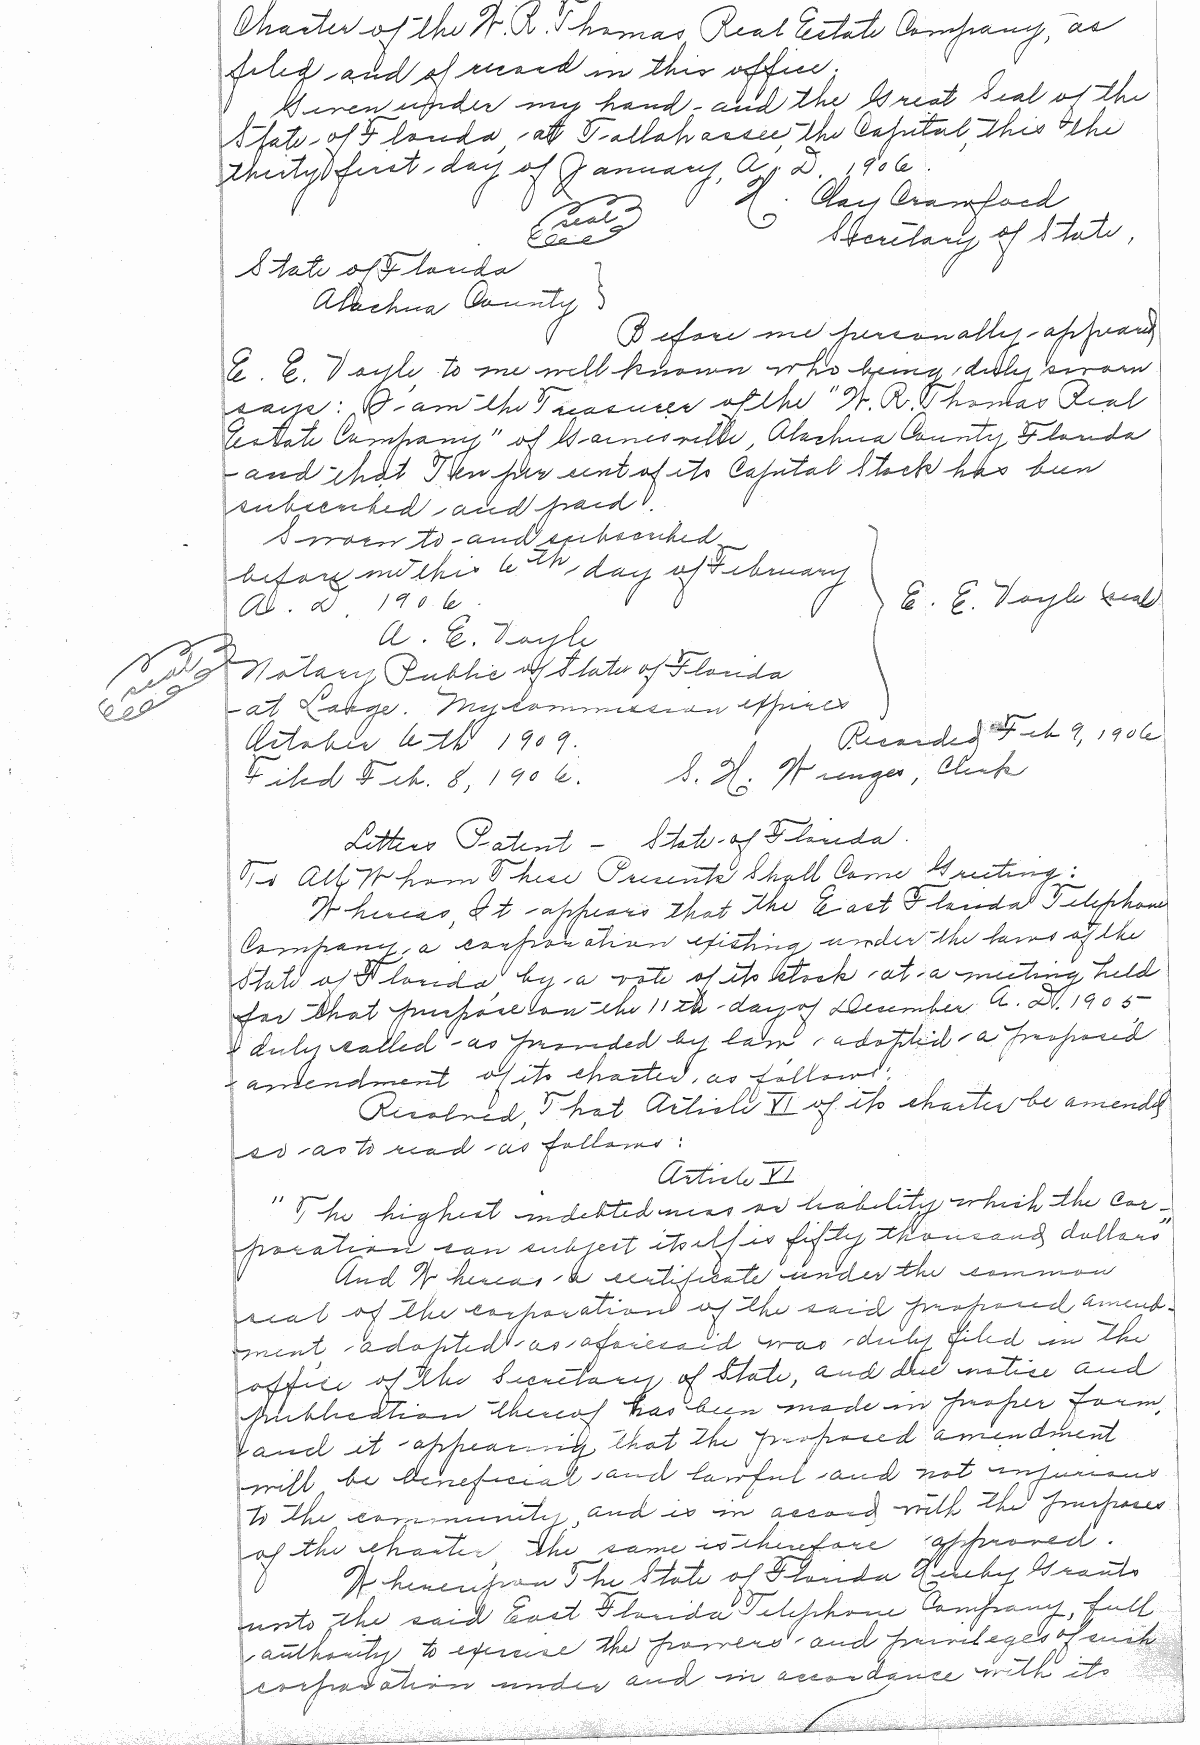 Charter of the W. R. Thomas Real Estate Company, as
filed and of record in this office.
Given under my hand and the Great Seal of the
State of Florida, at Tallahassee, the Capital, this the
thirty first day of January, A. D. 1906.
H. Clay Crawford
seal
Secretary of State,
State of Florida
Alachua County
Before me personally appeared
E. E. Voyle, to me well known who being duly sworn
says: I am the Treasurer of the "W. R. Thomas Real
Estate Company" of Gainesville, Alachua County, Florida
and that Ten per cent of its Capital Stock has been
subscribed and paid.
Sworn to and subscribed
before me this 6th day of February
A. D. 1906.
E. E. Voyle seal
A. E. Voyle
seal
Notary Public of State of Florida
at Large. My commission expires
October 6th 1909.
Recorded Feb 9, 1906
Filed Feb. 8, 1906.
S. H. Wienges, Clerk
Letters Patent - State of Florida.
To All Whom These Presents Shall Come Greeting:
Whereas, It appears that the East Florida Telephone
Company, a corporation existing under the laws of the
State of Florida, by a vote of its stock at a meeting held
for that purpose on the 11th day of December A. D. 1905
duly called as provided by law, adopted a proposed
amendment of its charter, as follows:
Resolved, That Article VI of its charter be amended
so as to read as follows:
Article VI
"The highest indebtedness or liability which the cor-
poration can subject itself is fifty thousand dollars"
And Whereas a certificate under the common
seal of the corporation of the said proposed amend-
ment, adopted as aforesaid was duly filed in the
office of the Secretary of State, and due notice and
publication thereof has been made in proper form,
and it appearing that the proposed amendment
will be beneficial and lawful and not injurious
to the community, and is in accord with the purposes
of the charter, the same is therefore approved.
Whereupon The State of Florida Hereby Grants
unto the said East Florida Telephone Company, full
authority to exercise the powers and privileges of such
corporation under and in accordance with its